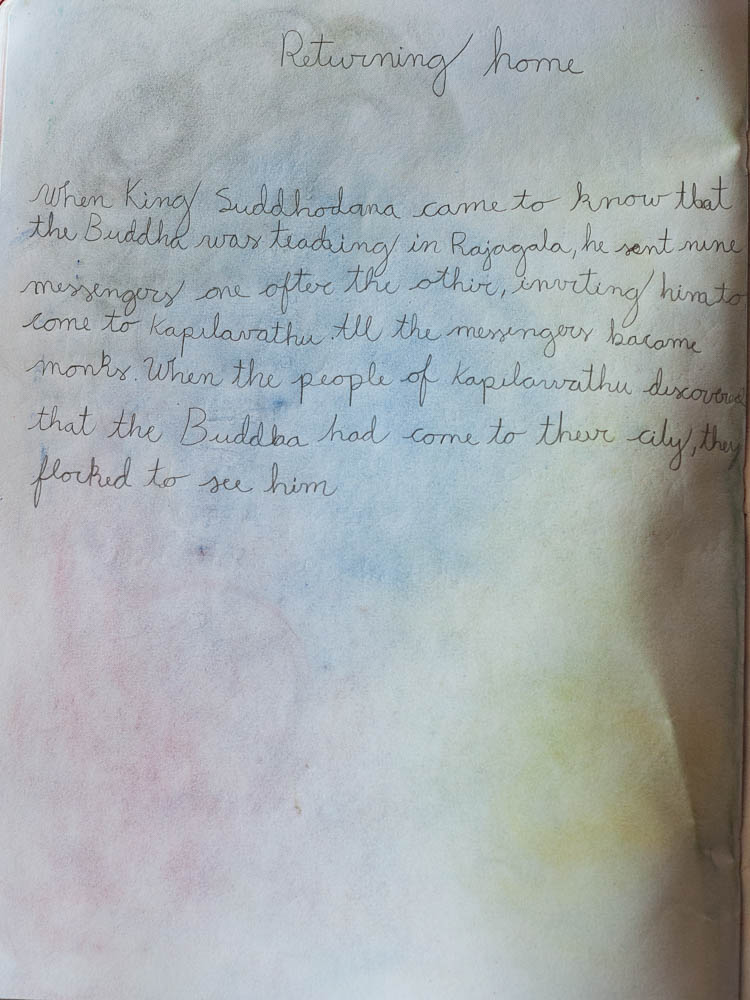 Returning home
When King Suddhodana came to know that
the Buddha was teaching in Rajagala, he sent nine
messengers one after the other, inviting him to
come to Kapilavathu. All the messengers bacame
monks. When the people of Kapilavathu discovered
that the Buddha had come to their city, they
flocked to see him